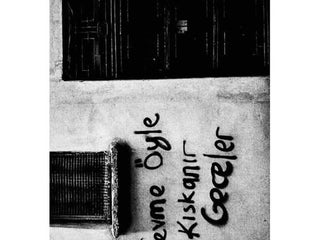 evme Öyle
Kıskanır
Geceler